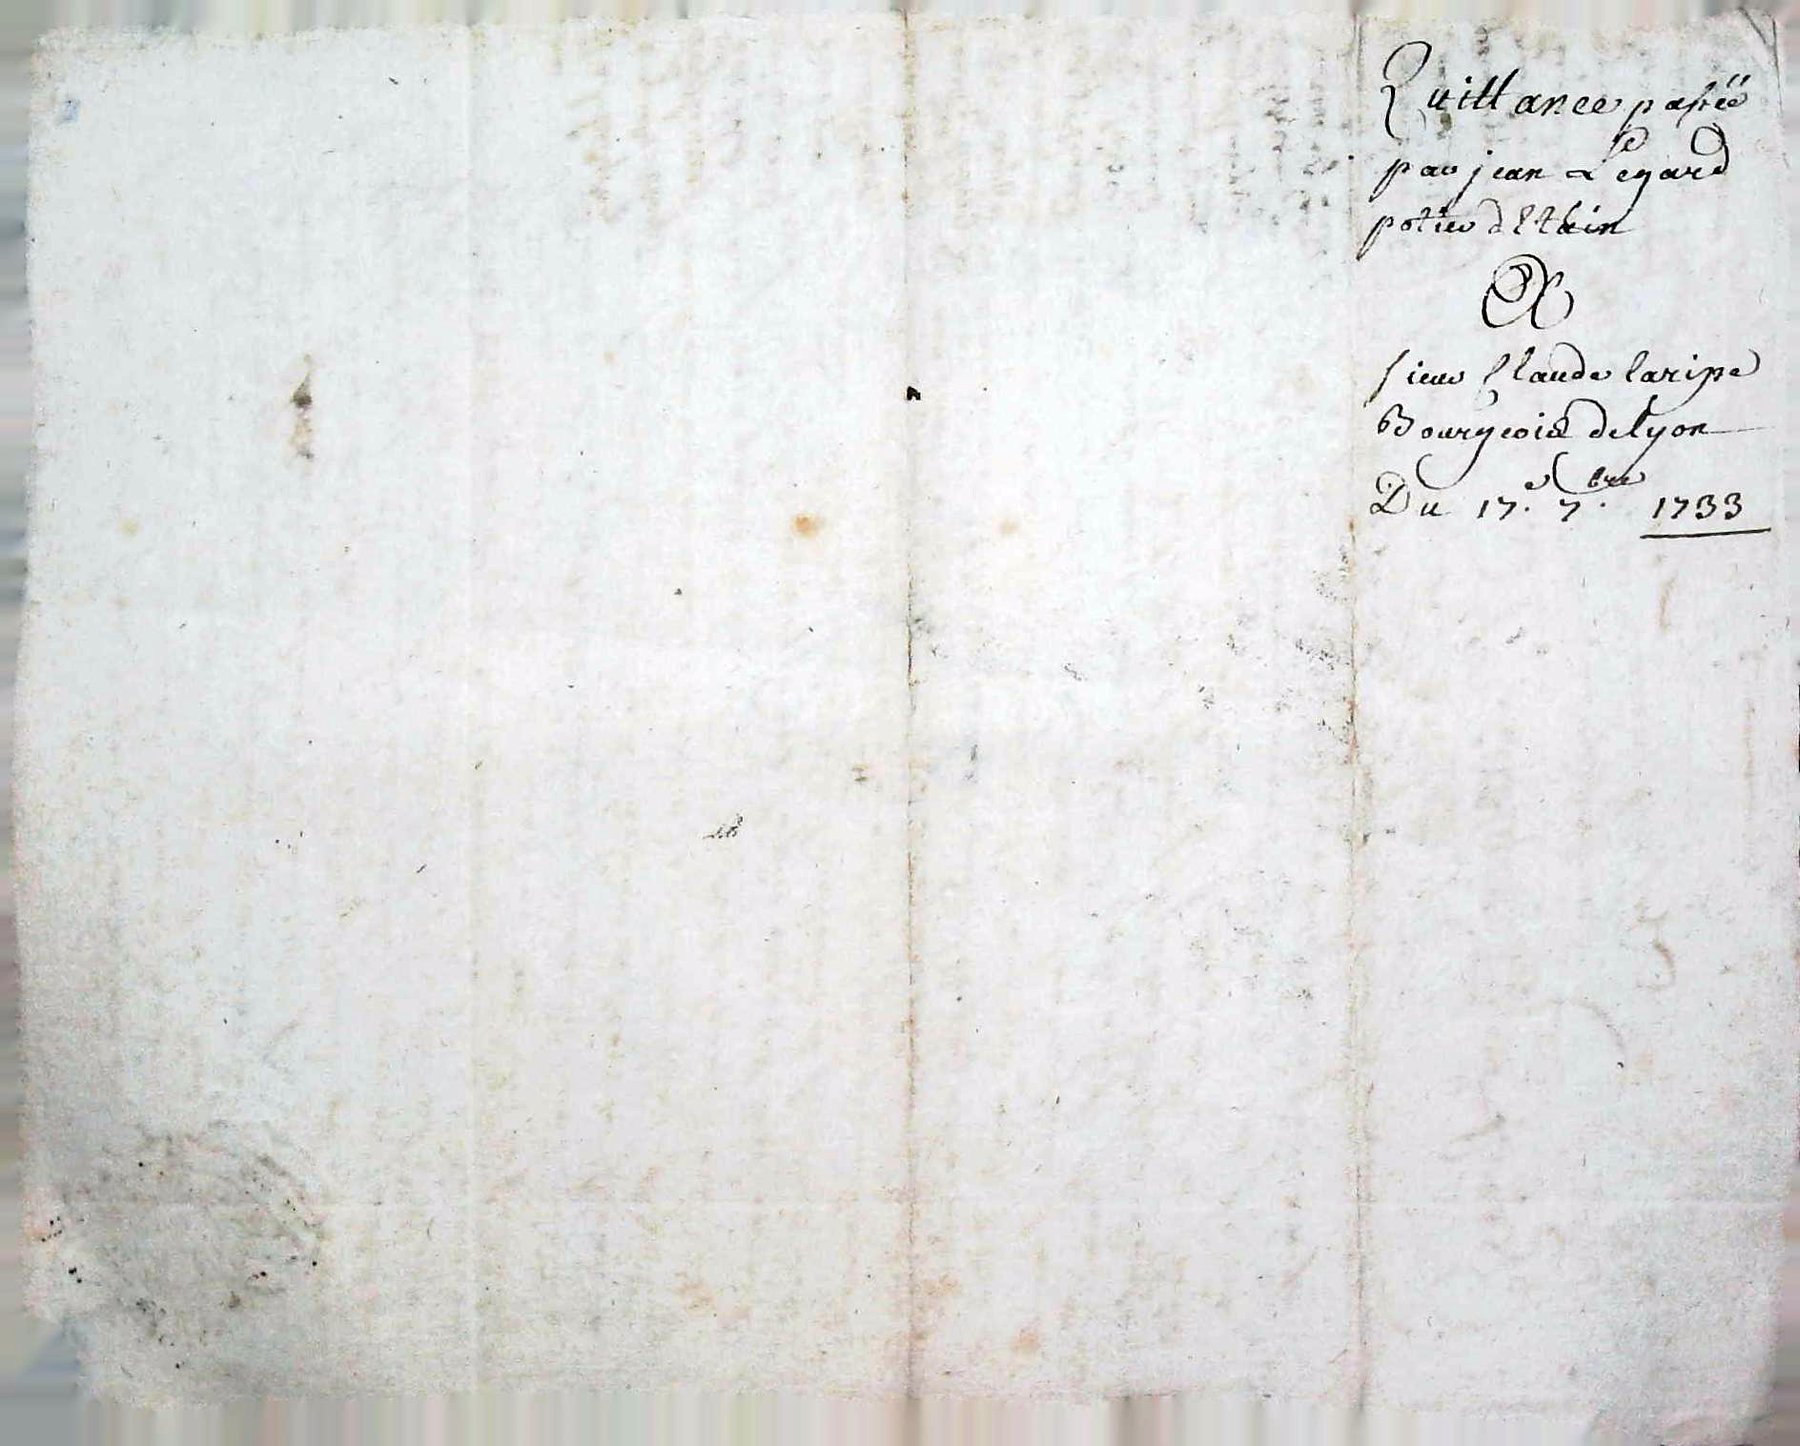 Quittance passée
par jean Legard
potier d'Etain
A
sieur Claude laripe
Bourgeois de lyon
Du 17.e 7.bre 1733